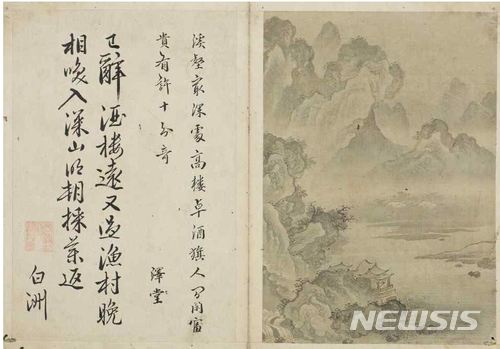 淡壑最深處高樓卓酒旗人間閒富
貴有許十分奇
澤堂
已辭酒樓遠又過漁村晚
相喚入深山明朝採藥返
白洲
NEWSIS